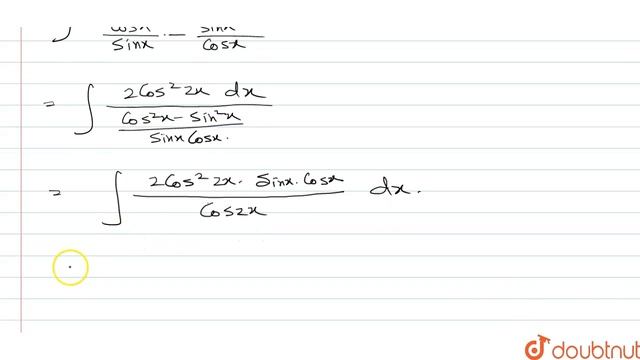 ∫ cosx/sinx - sinx/cosx
= ∫ 2cos²2x dx / ((cos²x - sin²x)/(sinx cosx.))
= ∫ (2cos²2x. sinx. cosx)/(cos2x) dx.
doubtnut